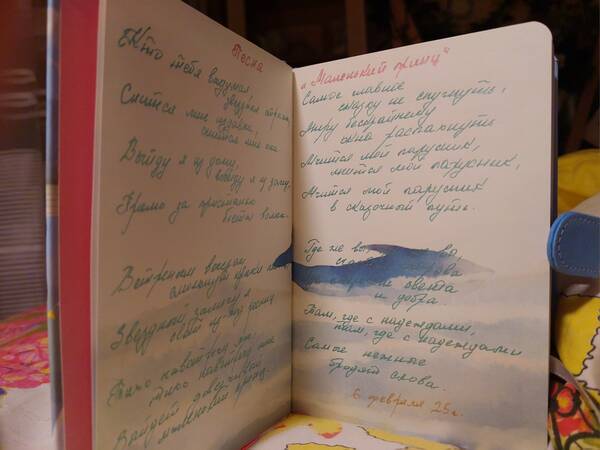 Песня
Кто тебя выдумал,
звездная страна
Снится мне издавна,
снится мне она
Выйду я из дому,
выйду я из дому,
Прямо за пристанью
бьется волна.
Ветреным вечером
смолкнут крики
Звездный замечу я
свет из-под ресниц
Тихо навстречу мне,
тихо навстречу мне
Выйдет доверчивый
маленький принц.
"Маленький принц"
Самое главное
сказку не спугнуть,
Миру бескрайнему
окна распахнуть
Мчится мой парусник,
мчится мой парусник,
Мчится мой парусник
в сказочный путь.
Где же вы,
света
и добра
Там, где с надеждами,
там, где с надеждами
Самые нежные
бродят слова.
6 февраля 25г.